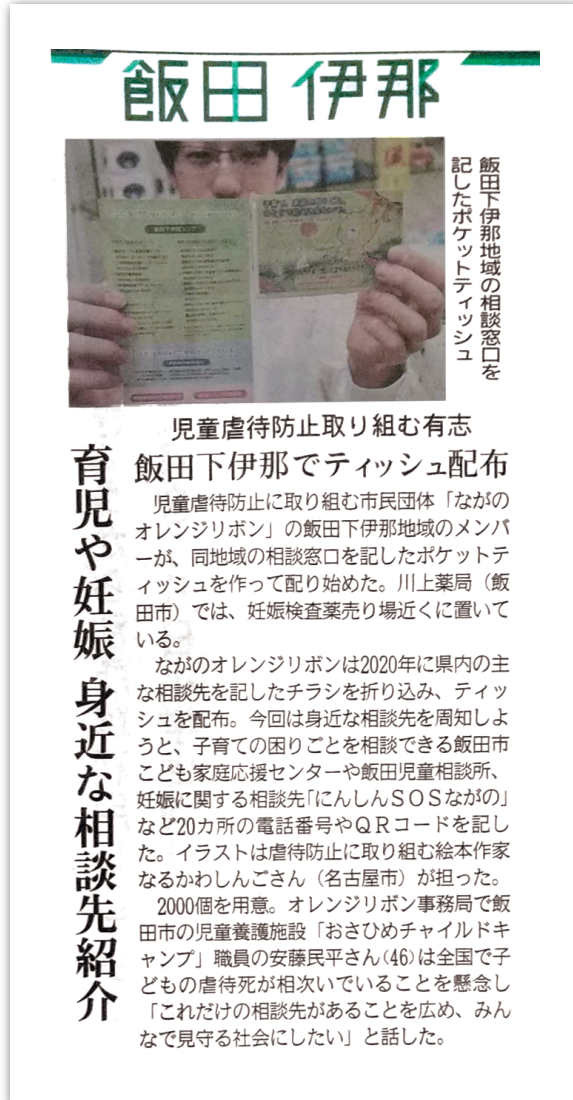 飯田 伊那
飯田下伊那地域の相談窓口を
記したポケットティッシュ
児童虐待防止取り組む有志
飯田下伊那でティッシュ配布
育児や妊娠 身近な相談先紹介
児童虐待防止に取り組む市民団体「ながの
オレンジリボン」の飯田下伊那地域のメンバ
ーが、同地域の相談窓口を記したポケットテ
ィッシュを作って配り始めた。川上薬局（飯
田市）では、妊娠検査薬売り場近くに置いて
いる。
ながのオレンジリボンは2020年に県内の主
な相談先を記したチラシを折り込み、ティッ
シュを配布。今回は身近な相談先を周知しよ
うと、子育ての困りごとを相談できる飯田市
こども家庭応援センターや飯田児童相談所、
妊娠に関する相談先「にんしんＳＯＳながの」
など20カ所の電話番号やＱＲコードを記し
た。イラストは虐待防止に取り組む絵本作家
なるかわしんごさん（名古屋市）が担った。
2000個を用意。オレンジリボン事務局で飯
田市の児童養護施設「おさひめチャイルドキ
ャンプ」職員の安藤民平さん(46)は全国で子
どもの虐待死が相次いでいることを懸念し
「これだけの相談先があることを広め、みん
なで見守る社会にしたい」と話した。